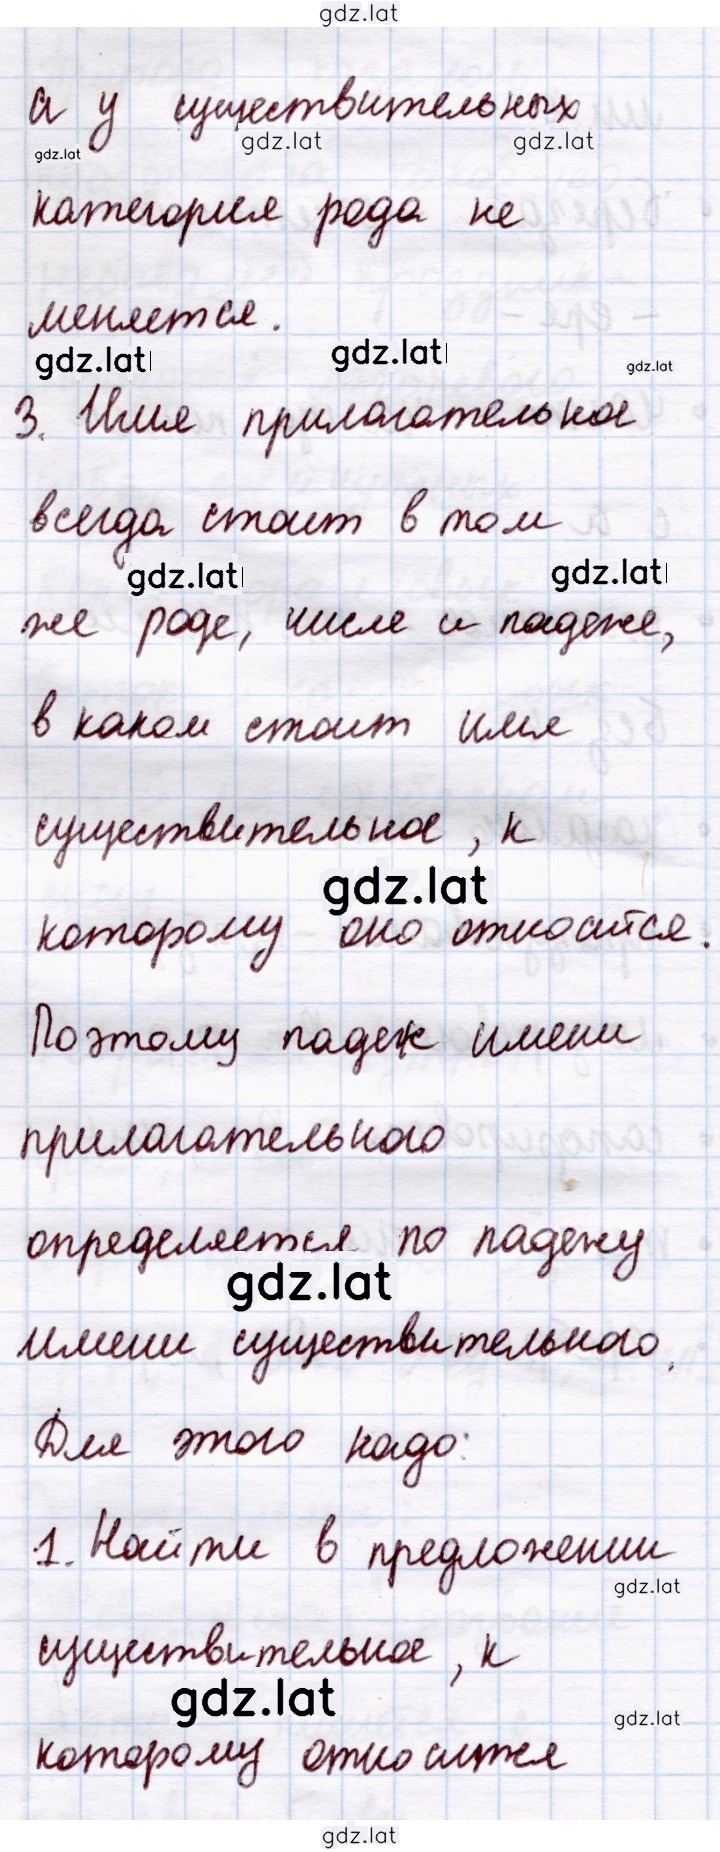 gdz.lat
а у существительных
gdz.lat gdz.lat gdz.lat
категория рода не
меняется.
gdz.lat gdz.lat gdz.lat
3. Имя прилагательное
всегда стоит в том
gdz.lat gdz.lat
же роде, числе и падеже,
в каком стоит имя
существительное, к
gdz.lat
которому оно относится.
Поэтому падеж имени
прилагательного
определяется по падежу
gdz.lat
имени существительного.
Для этого надо:
1. Найти в предложении
gdz.lat
существительное, к
gdz.lat gdz.lat
которому относится
gdz.lat